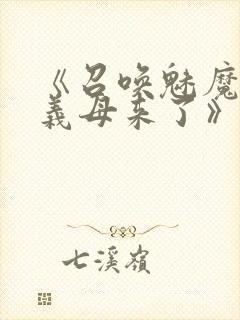 《召唤魅魔
義母来了》
七溪嶺